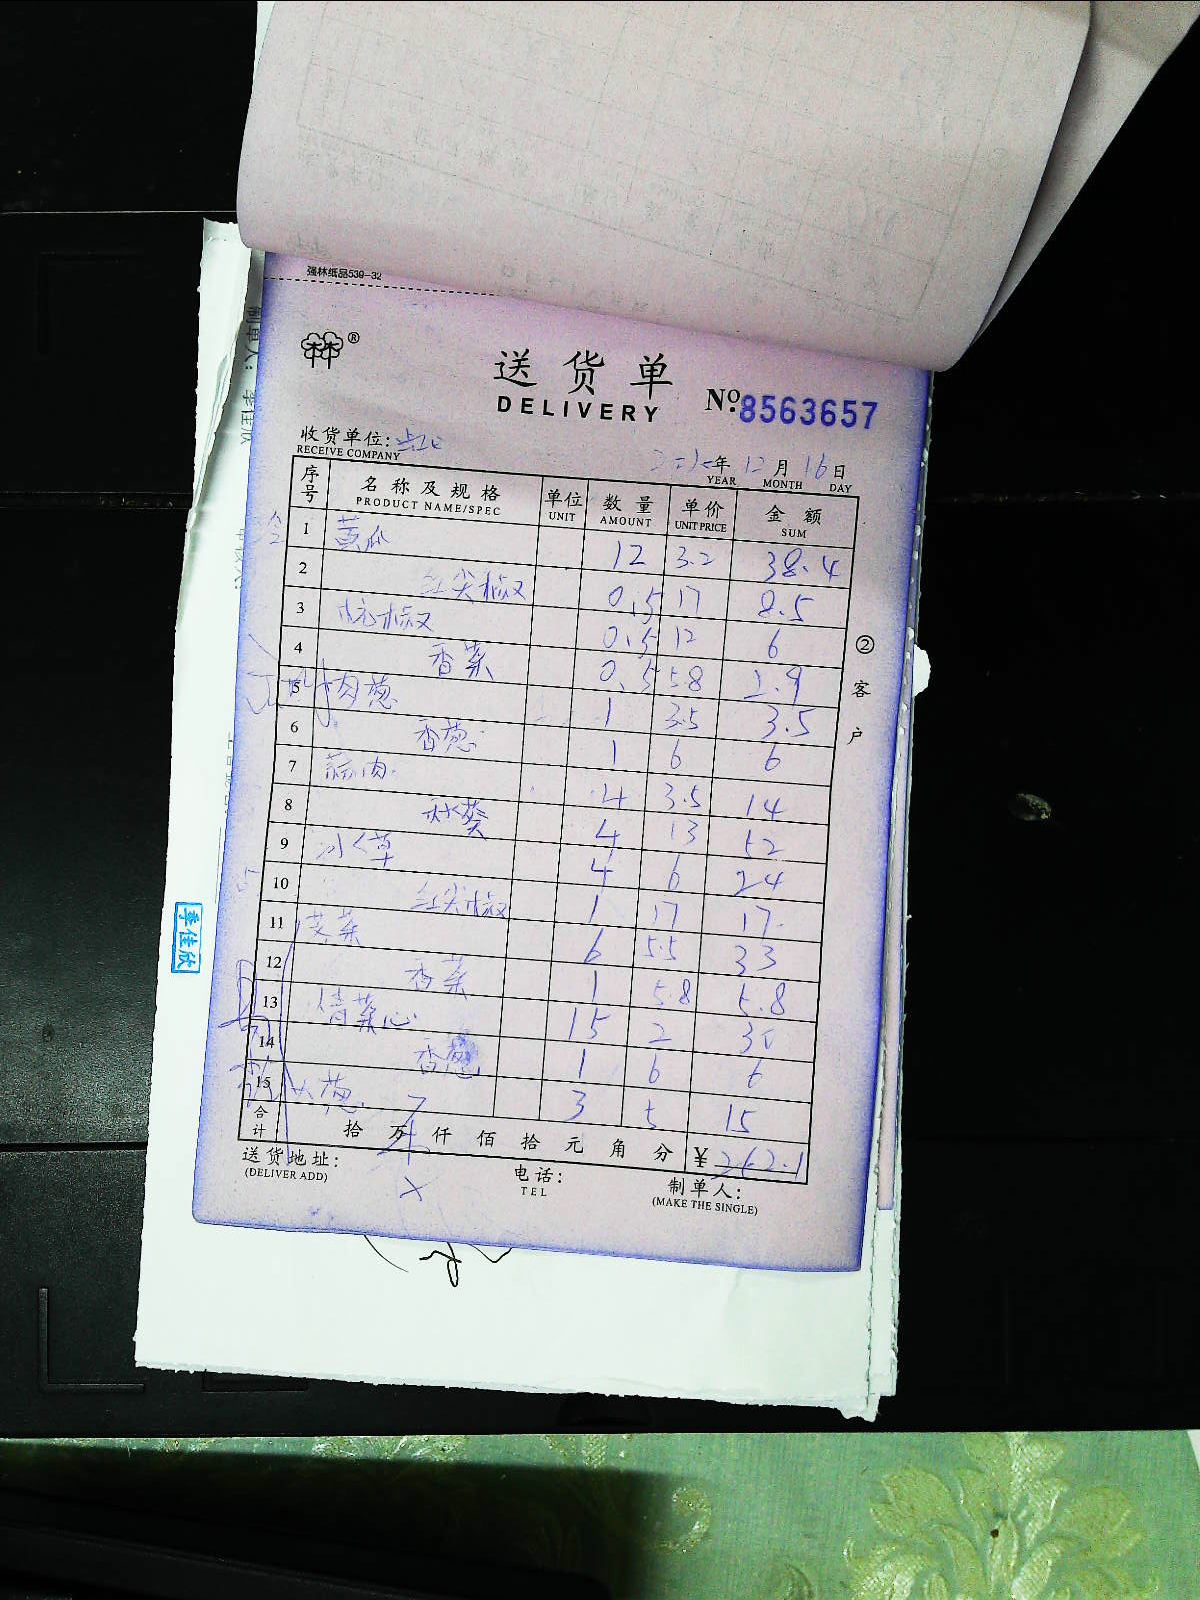 强林纸品539-32
®
送货单
DELIVERY
No. 8563657
收货单位:
RECEIVE COMPANY
年 12 月 16 日
YEAR MONTH DAY
序号 名称及规格 单位 数量 单价 金额
PRODUCT NAME/SPEC UNIT AMOUNT UNIT PRICE SUM
1 黄瓜 12 3.2 38.4
2 红尖椒 0.5 17 8.5
3 杭椒 0.5 12 6
4 香菜 0.5 5.8 2.9
5 肉葱 1 3.5 3.5
6 香葱 1 6 6
7 蒜肉 4 3.5 14
8 秋葵 4 13 52
9 冰草 4 6 24
10 红尖椒 1 17 17
11 菜 6 5.5 33
12 香菜 1 5.8 5.8
13 菜心 15 2 30
14 香葱 1 6 6
15 葱 3 5 15
合计 拾 万 仟 佰 拾 元 角 分 ¥ 262.1
送货地址:
(DELIVER ADD)
电话:
TEL
制单人:
(MAKE THE SINGLE)
②客户
制单人: 季佳欣
季佳欣